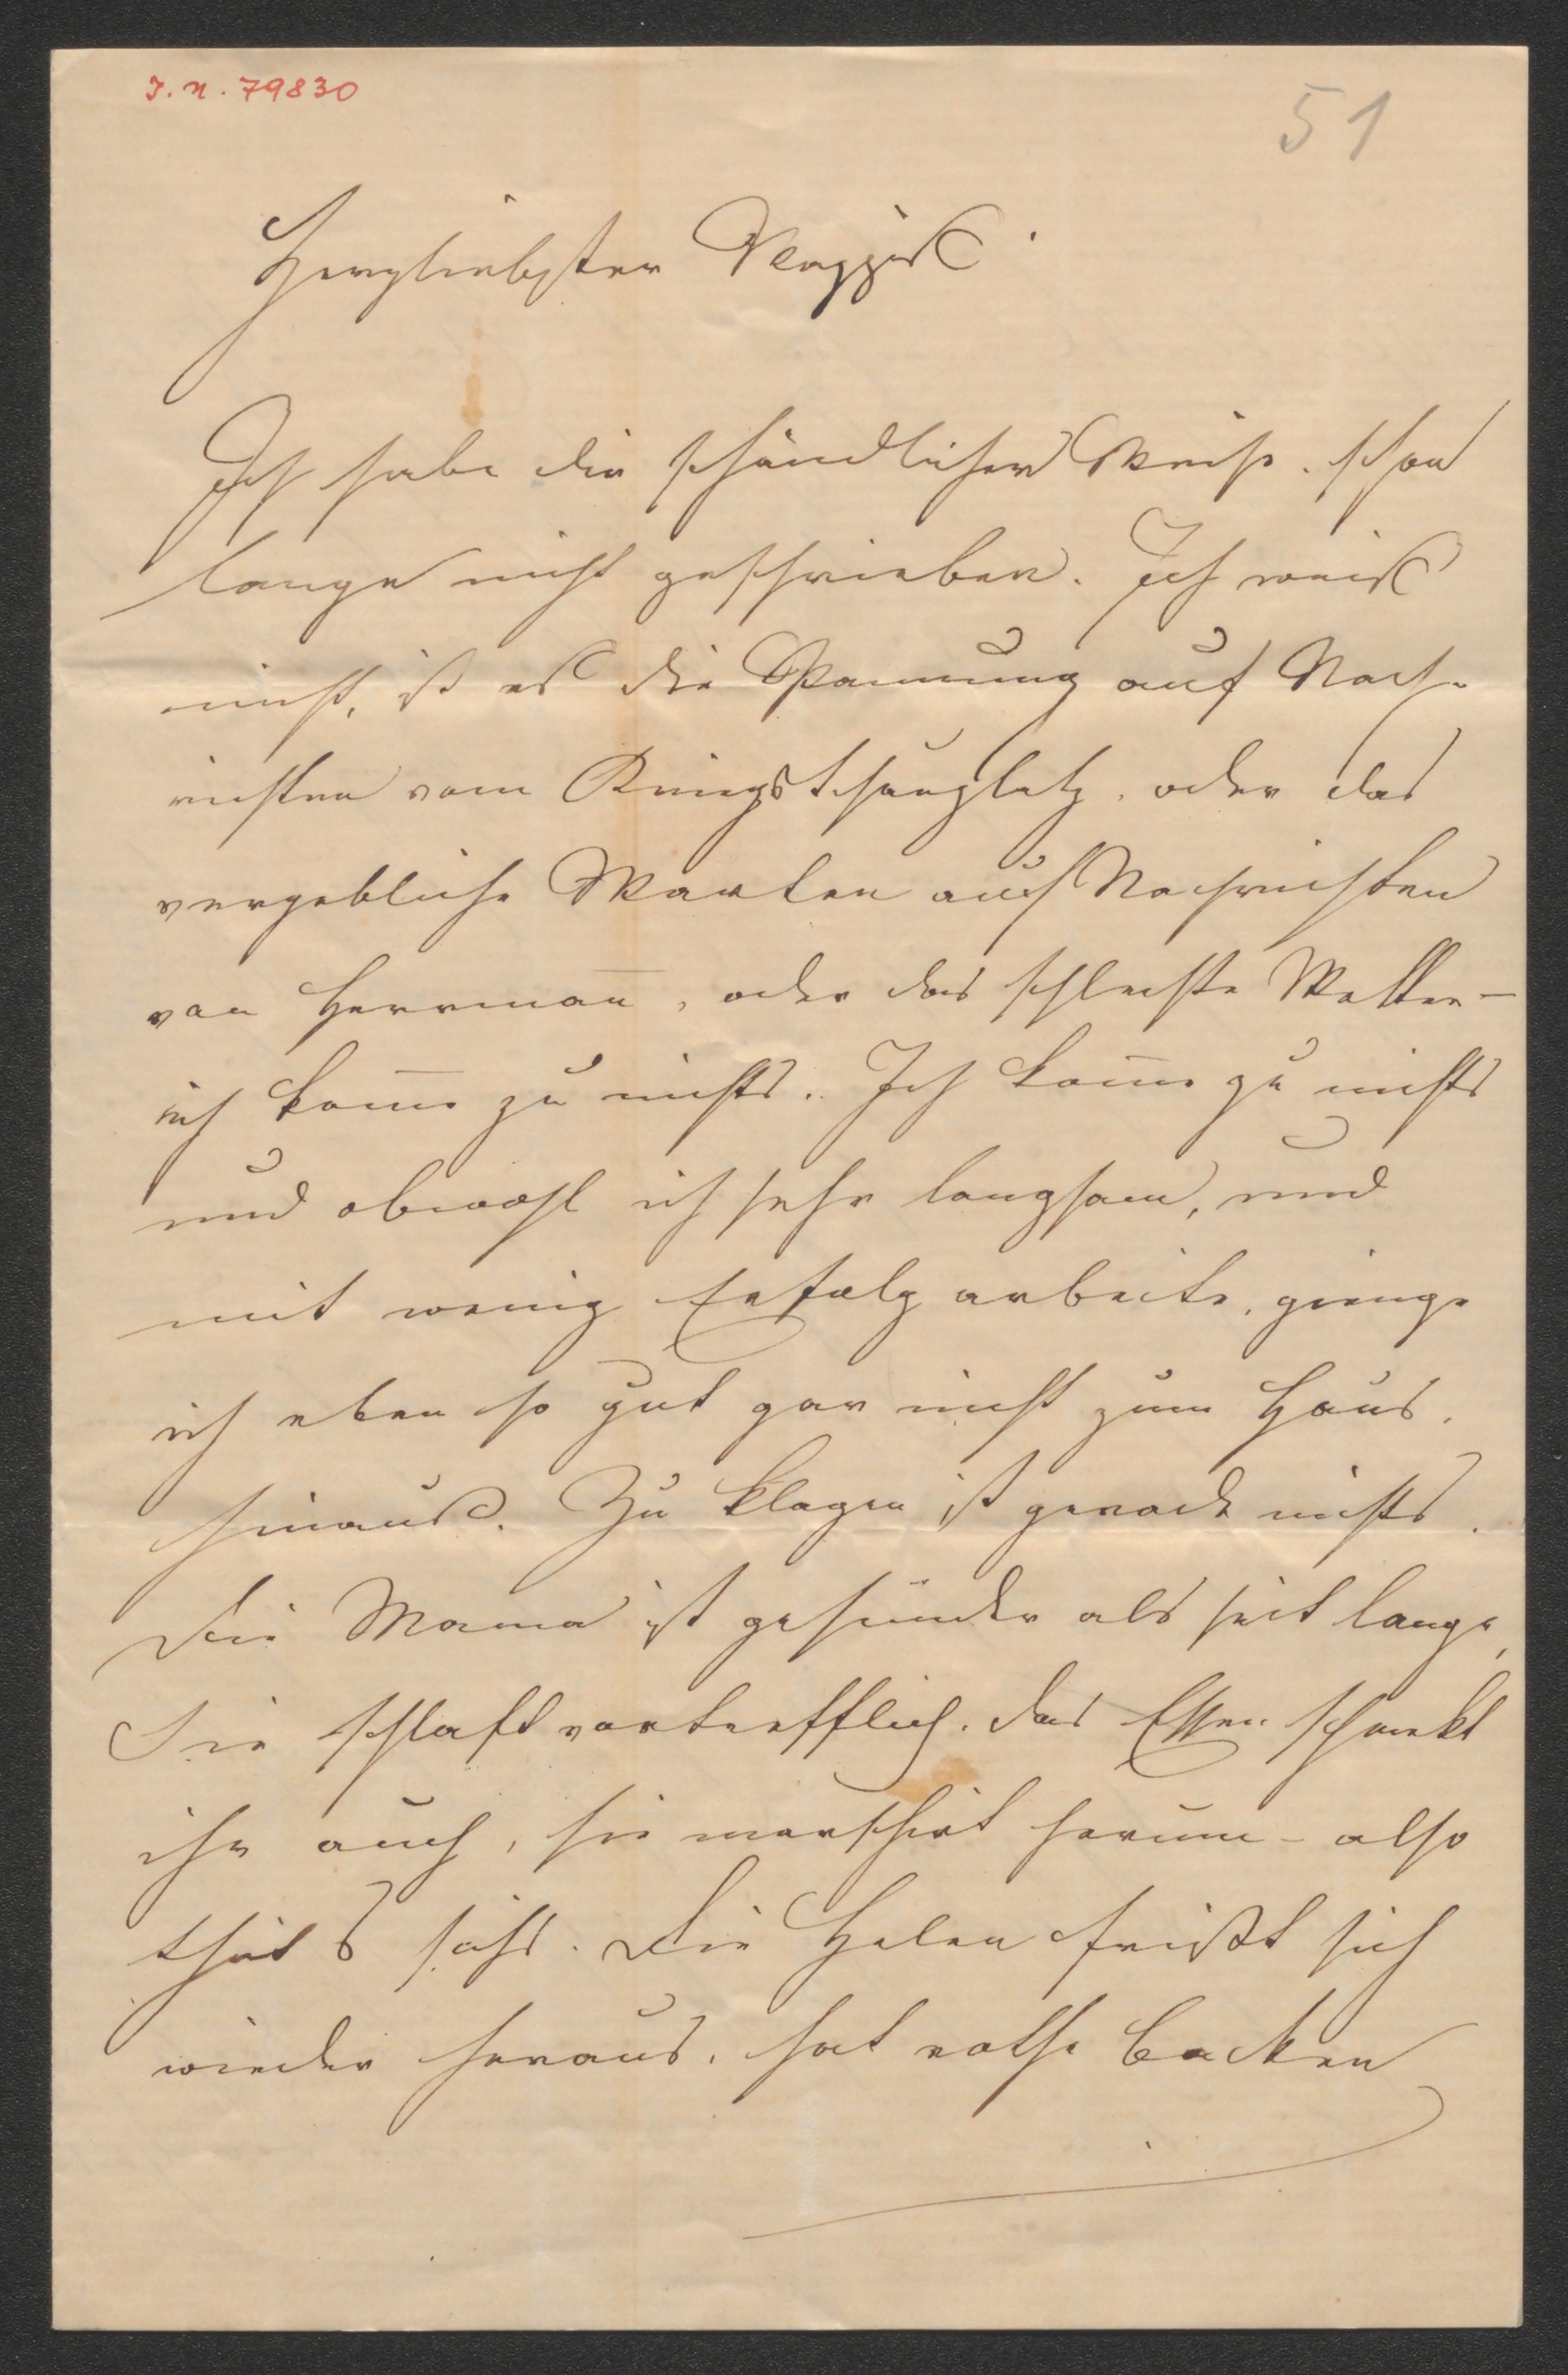 I. N. 79830
51
Herzliebster
Ich habe dir schändlicher Weise schon
lange nicht geschrieben. Ich weiß
nicht, ist es die Spannung auf Nach-
richten vom Kriegsschauplatz, oder das
vergebliche Warten auf Nachrichten
von Herrmann, oder das schlechte Wetter –
ich kom̄e zu nichts. Ich kom̄e zu nichts
und obwohl ich sehr langsam, und
mit wenig Erfolg arbeite, gienge
ich eben so gut gar nicht zum Haus
hinaus. Zu klagen ist gerade nichts.
Die Mama ist gesünder als seit lange,
Sie schlaft vortrefflich, das Essen schmekt
ihr auch, sie marschirt herum – also
thut's sichs. Die Helen frißt sich
wieder heraus, hat rothe Backen